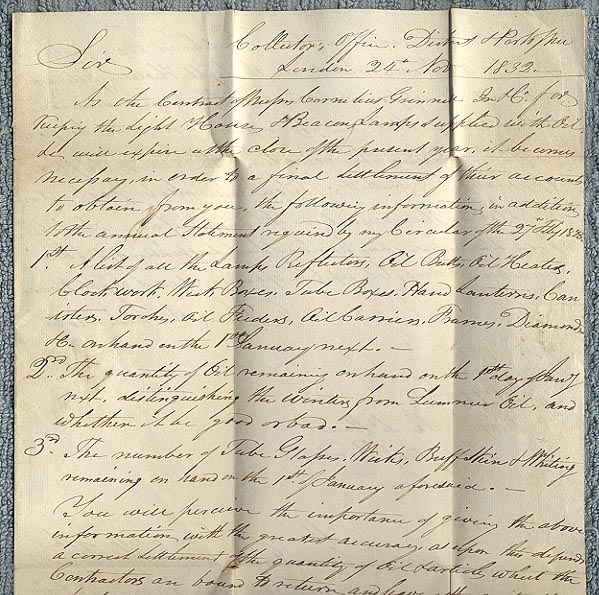 Collector's Office, District & Port of
Sir
London 24th Nov 1832.
As the Contract of Messrs Cornelius Grinnell Jr. &c. for
keeping the Light Houses & Beacon Lamps supplied with Oil
&c will expire at the close of the present year, it becomes
necessary, in order to a final settlement of their accounts
to obtain from you, the following information, in addition
to the annual Statement required by my Circular of the 27th Feby
1st. A list of all the Lamps Reflectors, Oil Butts, Oil Heaters,
Clock work, Wick Boxes, Tube Boxes, Hand Lanterns, Can
isters, Torches, Oil Feeders, Oil Carriers, Frames, Diamonds
&c. on hand on the 1st January next. —
2nd. The quantity of Oil remaining on hand on the 1st day of Jany
next, distinguishing the Winter from Summer Oil, and
whether it be good or bad. —
3rd. The number of Tube Glasses, Wicks, Buff Skin & Whiting
remaining on hand on the 1st of January aforesaid. —
You will perceive the importance of giving the above
information with the greatest accuracy as upon this depends
a correct settlement of the quantity of Oil & articles which the
Contractors are bound to return and